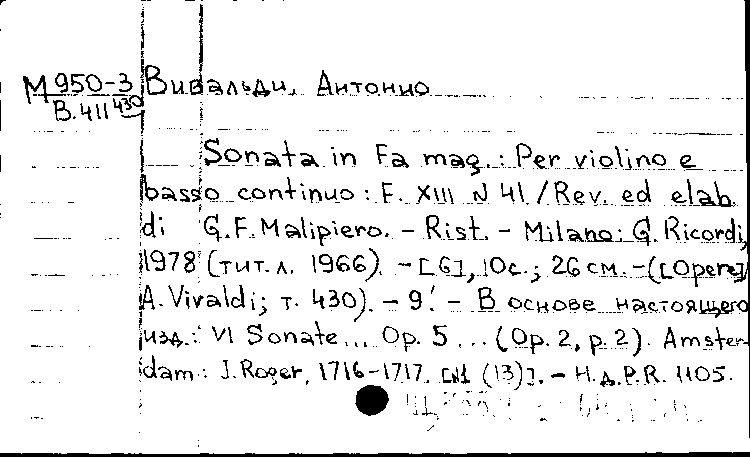 М 950-3 Вивальди, Антонио
В.411 430
Sonata in Fa mag. : Per violino e
basso continuo : F. XIII N 41 / Rev. ed elab.
di G.F. Malipiero. – Rist. – Milano : G. Ricordi,
1978 (тит. л. 1966). – [6], 10 с. ; 26 см. – ([Opere]
A. Vivaldi; т. 430). – 9'. – В основе настоящего
изд.: VI Sonate... Op. 5 ... (Op. 2, p. 2). Amster-
dam : J. Roger, 1716-1717. [N1 (13)]. – Н.д. P.R. 1105.